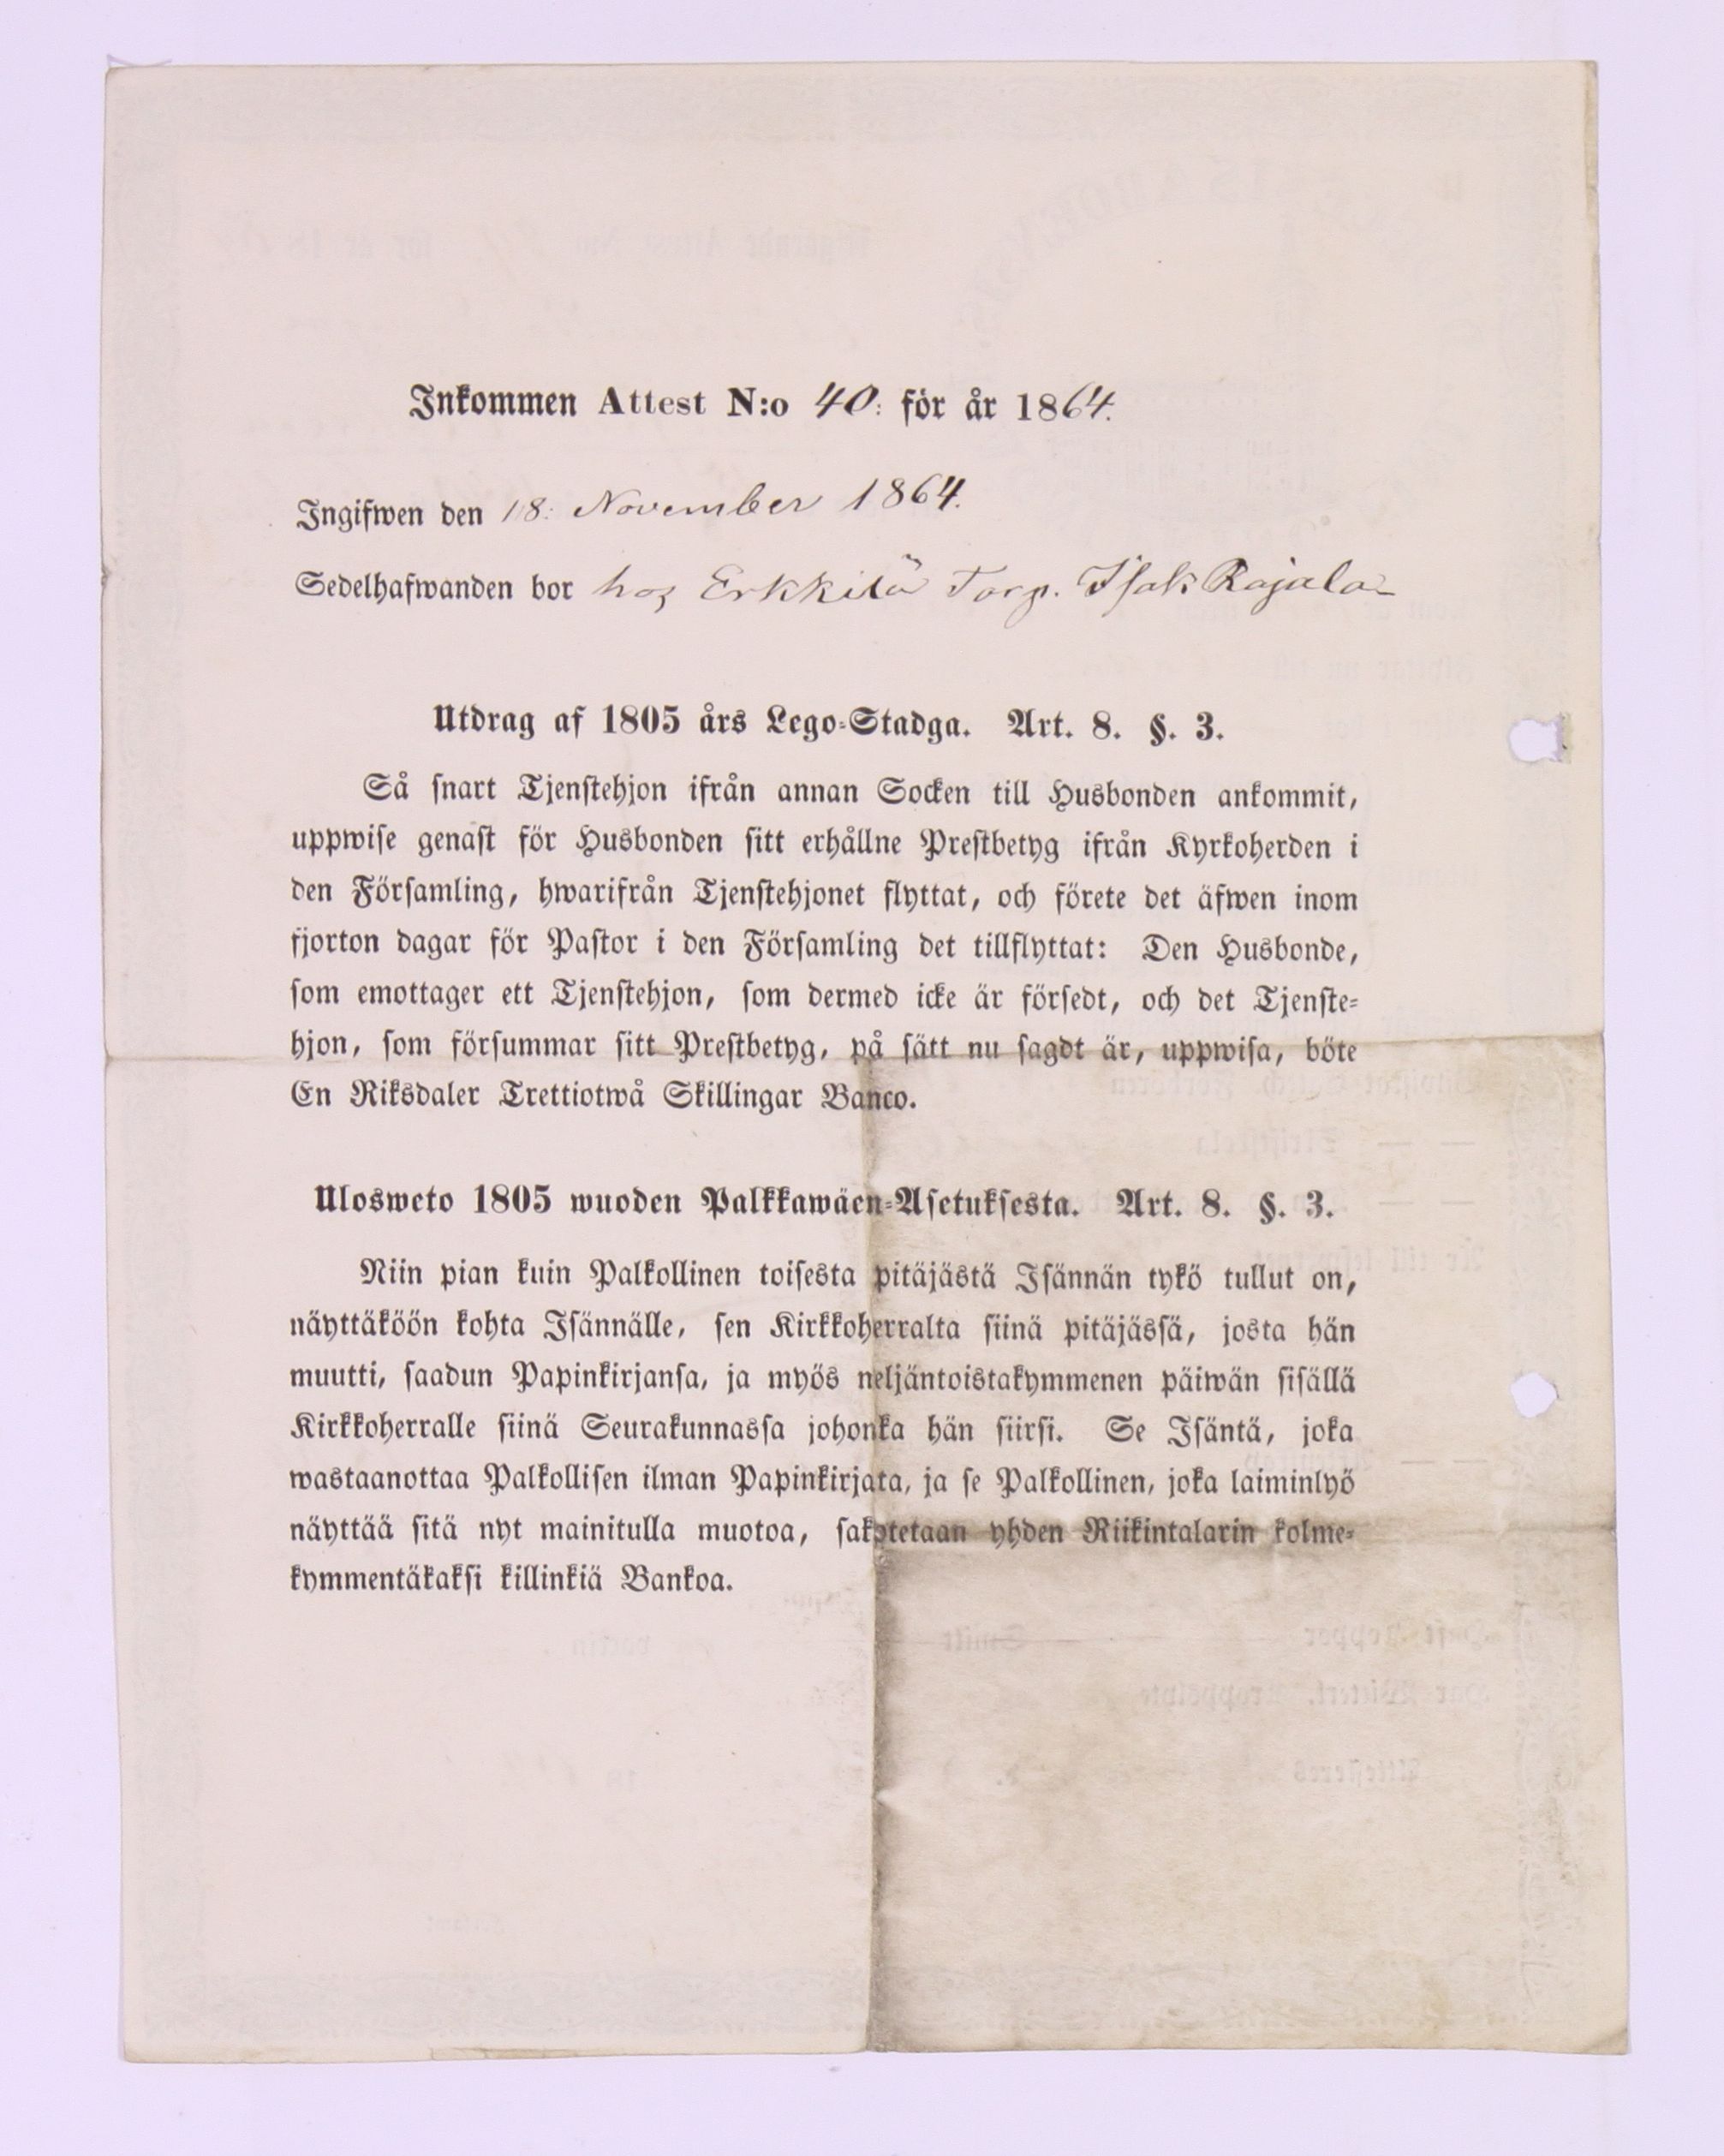 Inkommen Attest N:o 40: för år 1864.
Ingifwen den 18: November 1864.
Sedelhafwanden bor hos Erkkilä Torp. Isak Rajala
Utdrag af 1805 års Lego-Stadga. Art. 8. §. 3.
Så snart Tjenstehjon ifrån annan Socken till Husbonden ankommit,
uppwise genast för Husbonden sitt erhållne Prestbetyg ifrån Kyrkoherden i
den Församling, hwarifrån Tjenstehjonet flyttat, och förete det äfwen inom
fjorton dagar för Pastor i den Församling det tillflyttat: Den Husbonde,
som emottager ett Tjenstehjon, som dermed icke är försedt, och det Tjenste-
hjon, som försummar sitt Prestbetyg, på sätt nu sagdt är, uppwisa, böte
En Riksdaler Trettiotwå Skillingar Banco.
Ulosweto 1805 wuoden Palkkawäen-Asetuksesta. Art. 8. §. 3.
Niin pian kuin Palkollinen toisesta pitäjästä Isännän tykö tullut on,
näyttäköön kohta Isännälle, sen Kirkkoherralta siinä pitäjässä, josta hän
muutti, saadun Papinkirjansa, ja myös neljäntoistakymmenen päiwän sisällä
Kirkkoherralle siinä Seurakunnassa johonka hän siirsi. Se Isäntä, joka
wastaanottaa Palkollisen ilman Papinkirjata, ja se Palkollinen, joka laiminlyö
näyttää sitä nyt mainitulla muotoa, sakotetaan yhden Riikintalarin kolme-
kymmentäkaksi killinkiä Bankoa.